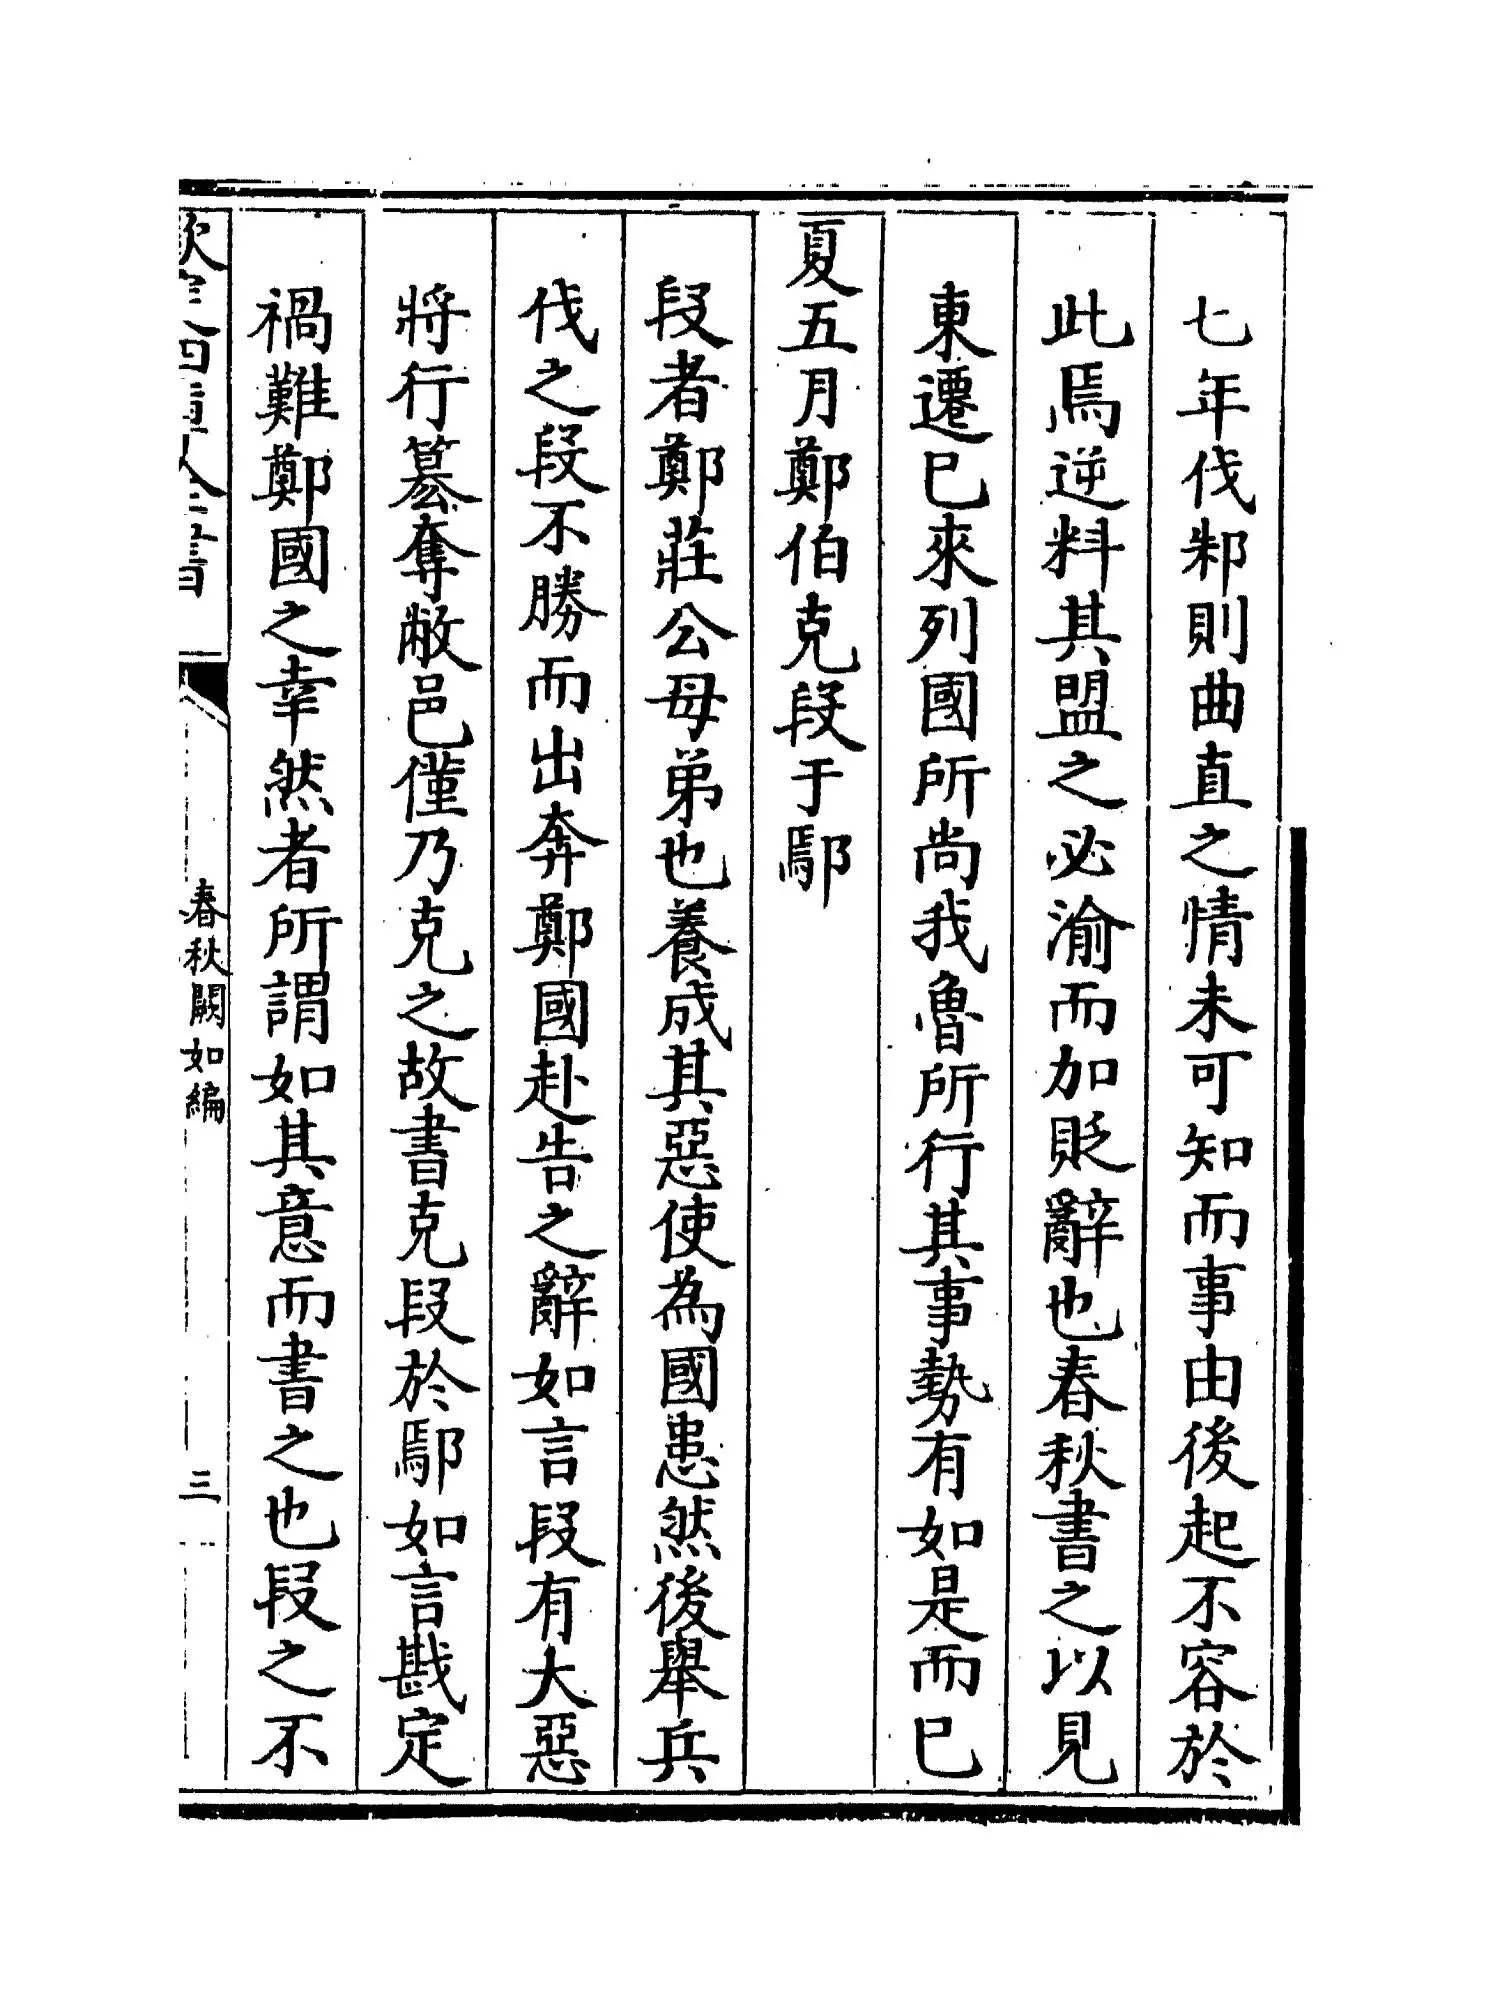 七年伐邾則曲直之情未可知而事由後起不容於
此焉逆料其盟之必渝而加貶辭也春秋書之以見
東遷已來列國所尚我魯所行其事勢有如是而已
夏五月鄭伯克段于鄢
段者鄭莊公母弟也養成其惡使為國患然後舉兵
伐之段不勝而出奔鄭國赴告之辭如言段有大惡
將行簒奪敝邑僅乃克之故書克段於鄢如言戡定
禍難鄭國之幸然者所謂如其意而書之也段之不
欽定四庫全書
春秋闕如編
三